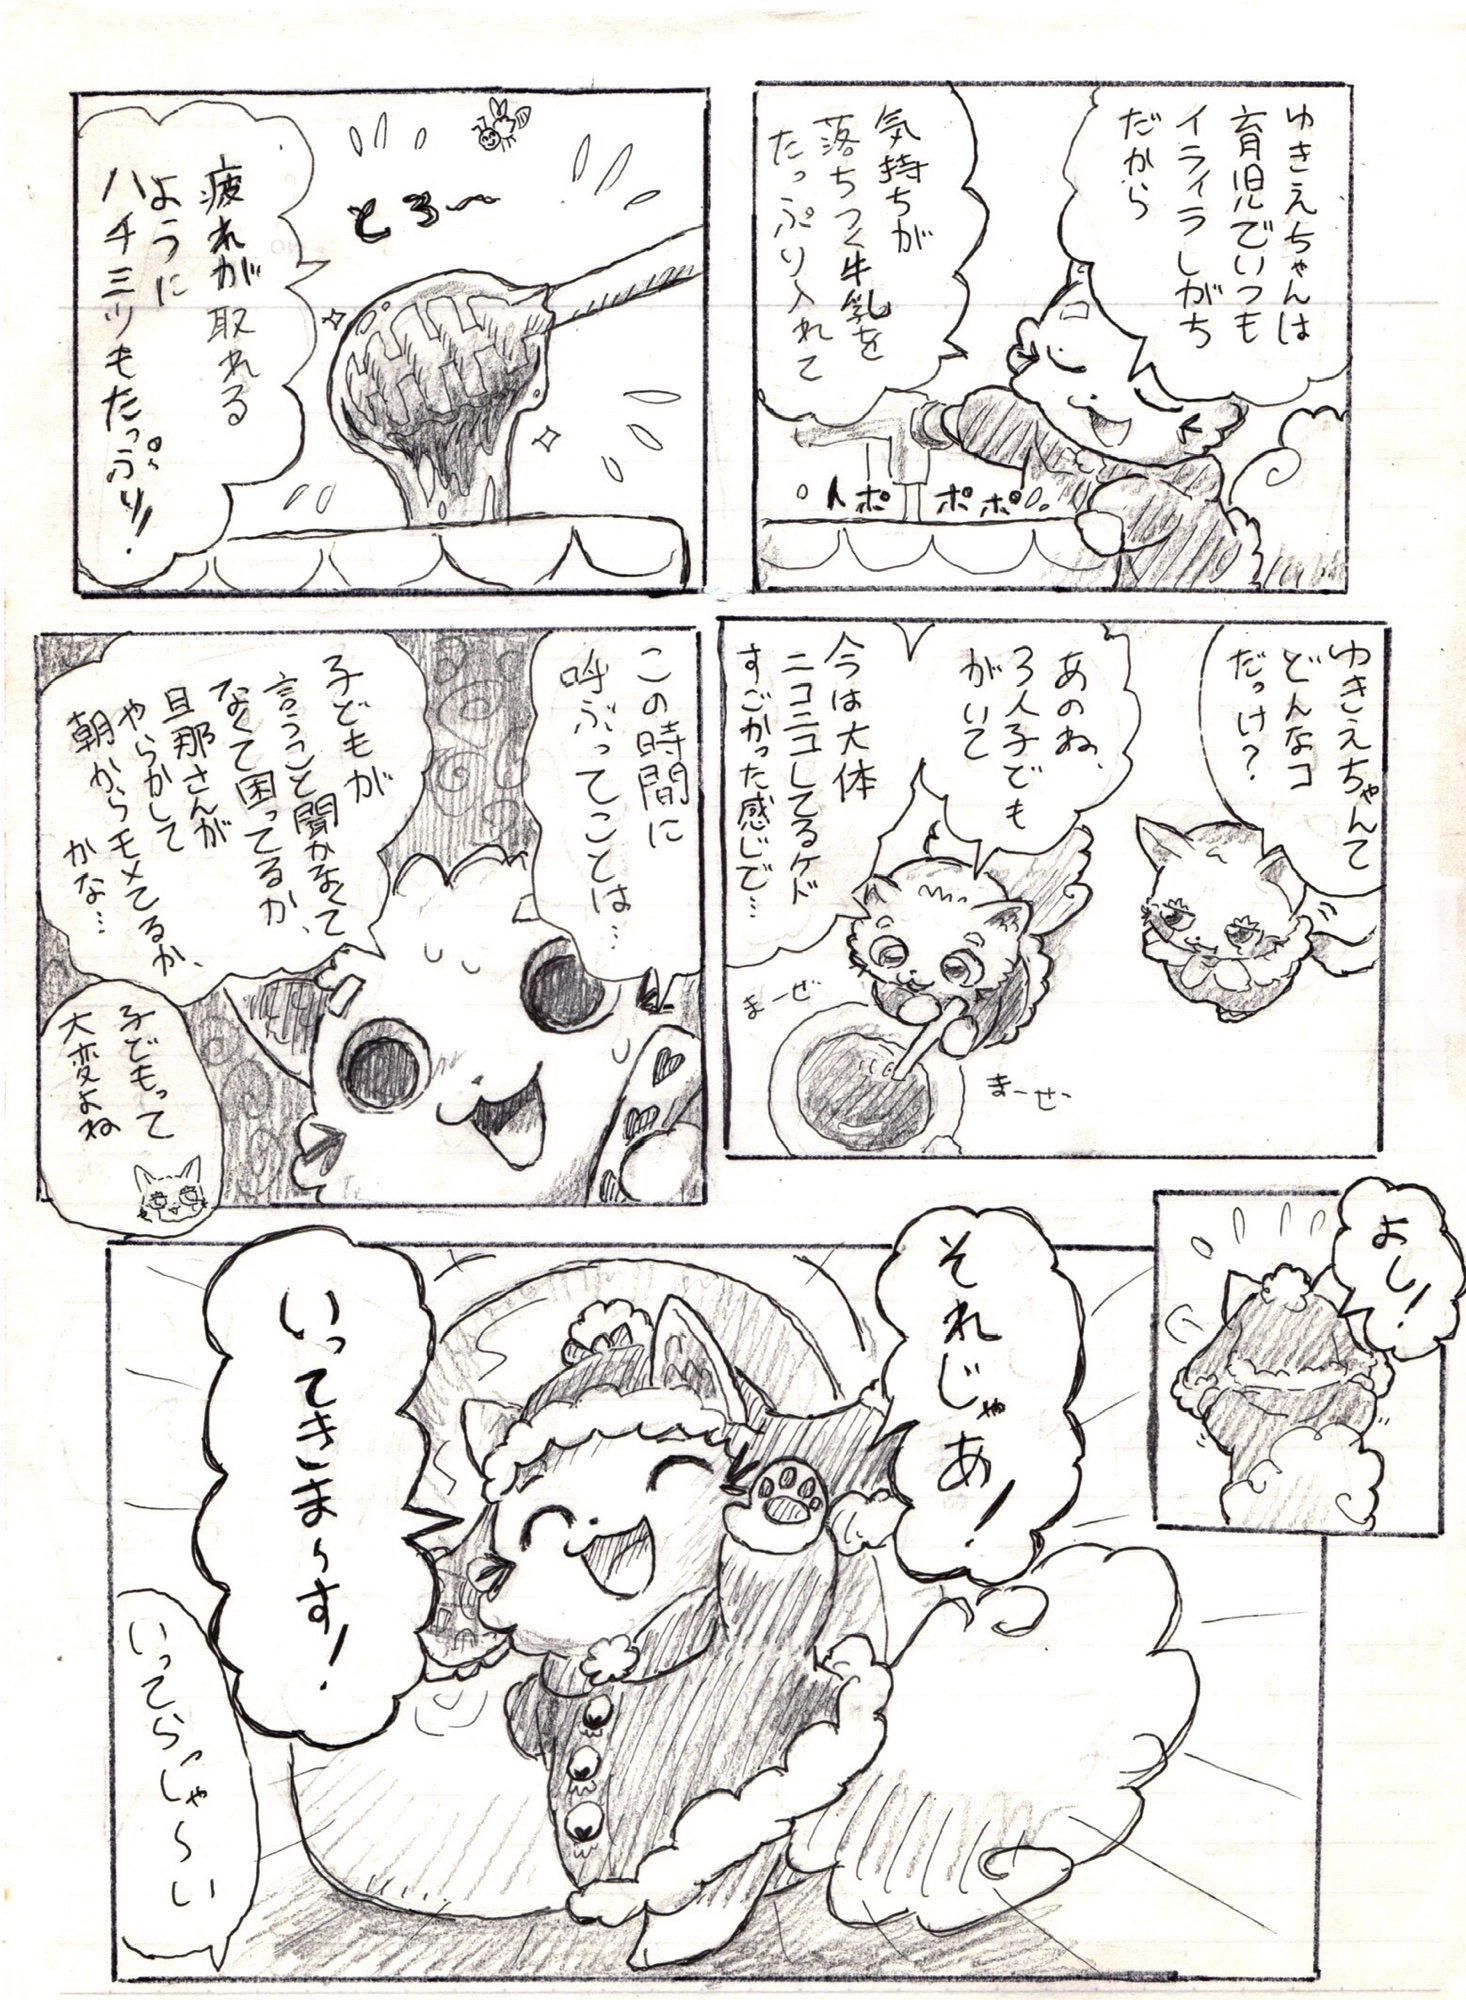 ゆきえちゃんは
育児でいつも
イライラしがち
だから
気持ちが
落ちつく牛乳を
たっぷり入れて
ポポポ
とろ〜
疲れが取れる
ように
ハチミツもたっぷり!
ゆきえちゃんて
どんなコ
だっけ?
あのね、
3人子ども
がいて
今は大体
ニコニコしてるケド
すごかった感じで…
まーぜ
まーぜー
この時間に
呼ぶってことは…
子どもが
言うこと聞かなくて
なくて困ってるか、
旦那さんが
やらかして
朝からモメてるか、
かな…
子どもって
大変よね
よし!
それじゃあ!
いってきま〜す!
いってらっしゃ〜い